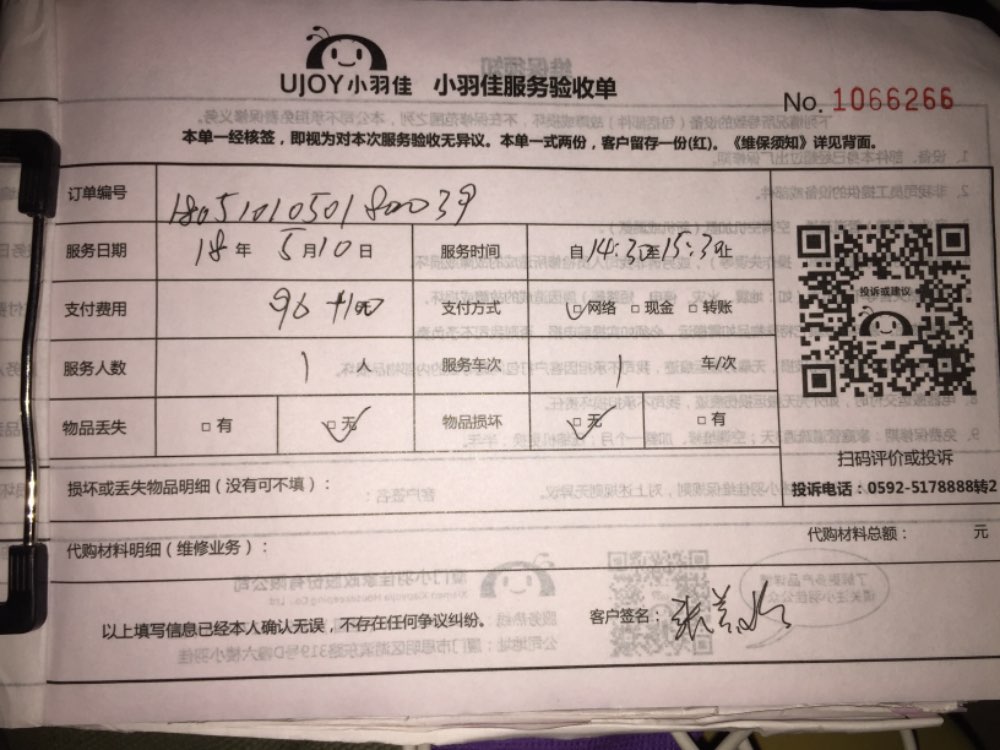 UJOY小羽佳 小羽佳服务验收单
No. 1066266
本单一经核签，即视为对本次服务验收无异议。本单一式两份，客户留存一份(红)。《维保须知》详见背面。
订单编号 18051010501800039
服务日期 18年 5月10日 服务时间 自14:30至15:30止
支付费用 96 +100元 支付方式 □网络 □现金 □转账
服务人数 1 人 服务车次 1 车/次
物品丢失 □有 □无 物品损坏 □无 □有
投诉或建议
扫码评价或投诉
损坏或丢失物品明细（没有可不填）：
投诉电话：0592-5178888转2
代购材料明细（维修业务）： 代购材料总额： 元
以上填写信息已经本人确认无误，不存在任何争议纠纷。 客户签名：